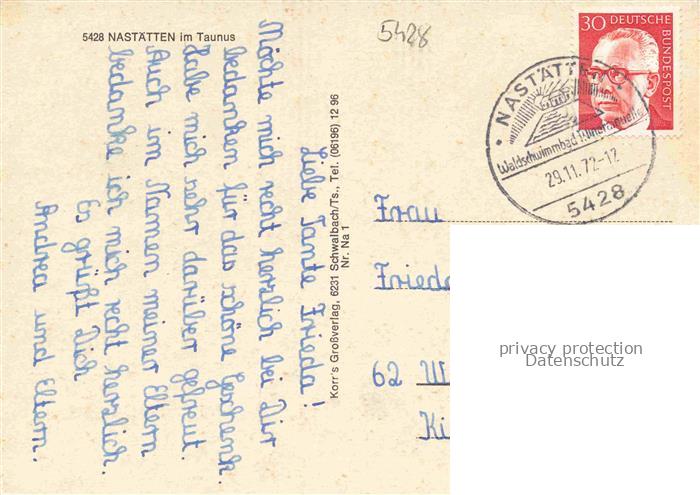 5428 NASTÄTTEN im Taunus
5428
Liebe Tante Frieda!
Möchte mich recht herzlich bei Dir
bedanken für das schöne Geschenk.
Habe mich sehr darüber gefreut.
Auch im Namen meiner Eltern
bedanke ich mich recht herzlich
Es grüßt Dich
Andrea und Eltern.
Korr's Großverlag, 6231 Schwalbach/Ts., Tel. (06196) 12 96
Nr. Na 1
30 DEUTSCHE
BUNDESPOST
NASTÄTTEN
Waldschwimmbad Mineralquelle
29.11.72-12
5428
Frau
Frieda
62 W
Ki
privacy protection
Datenschutz